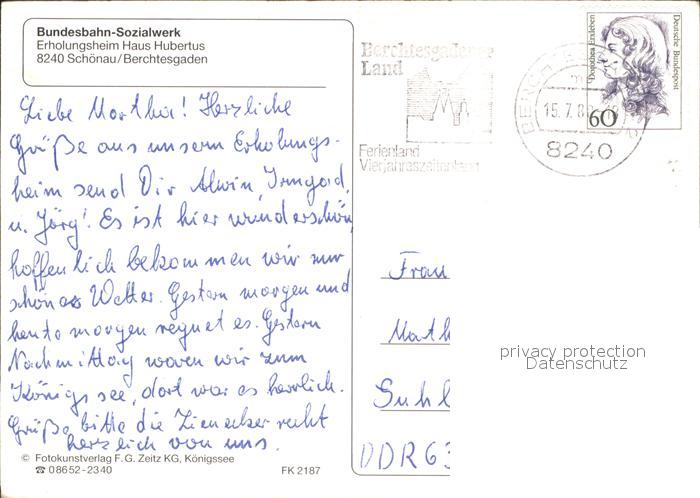 Bundesbahn-Sozialwerk
Erholungsheim Haus Hubertus
8240 Schönau/Berchtesgaden
Liebe Martha! Herzliche
Grüße aus unserm Erholungs-
heim send Dir Alwin, Irmgard,
u. Jörg! Es ist hier wunderschön,
hoffenlich bekommen wir nur
schönes Wetter. Gestern morgen und
heute morgen regnet es. Gestern
Nachmittag waren wir zum
Königssee, dort war es herrlich.
Grüße bitte die Zienecker recht
herzlich von uns.
© Fotokunstverlag F. G. Zeitz KG, Königssee
☎ 08652-2340
FK 2187
Berchtesgadener
Land
Ferienland
Vierjahreszeitenland
15.7.8
8240
Dorothea Erxleben
Deutsche Bundespost
60
Frau
Math
Suhl
DDR 63
privacy protection
Datenschutz